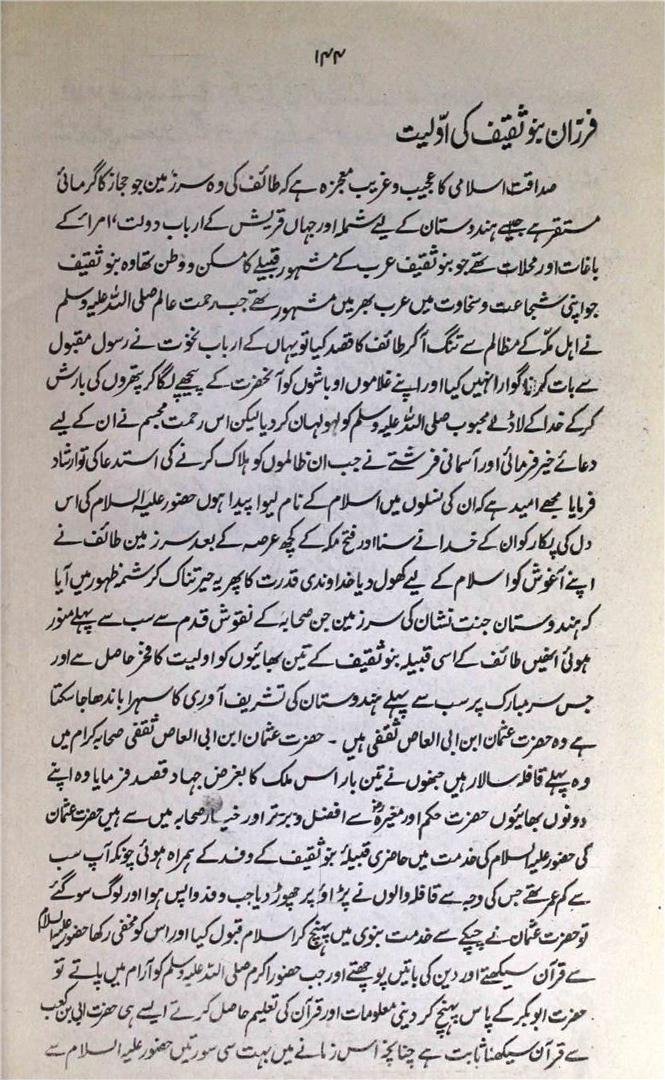 ۱۴۴
فرزان بنو ثقیف کی اوّلیت
صداقت اسلامی کا عجیب و غریب معجزہ ہے کہ طائف کی وہ سرزمین جو حجاز کا گرمائی
مستقر ہے جیسے ہندوستان کے لیے شملہ اور جہاں قریش کے ارباب دولت، امرا کے
باغات اور محلات تھے جو بنو ثقیف عرب کے مشہور قبیلے کا مسکن و وطن تھا وہ بنو ثقیف
جو اپنی شجاعت و سخاوت میں عرب بھر میں مشہور تھے جب رحمت عالم صلی اللہ علیہ وسلم
نے اہل مکہ کے مظالم سے تنگ آ کر طائف کا قصد کیا تو یہاں کے ارباب نخوت نے رسول مقبول
سے بات کرنا گوارا نہیں کیا اور اپنے غلاموں اوباشوں کو آنحضرت کے پیچھے لگا کر پتھروں کی بارش
کر کے خدا کے لاڈلے محبوب صلی اللہ علیہ وسلم کو لہولہان کر دیا لیکن اس رحمت مجسم نے ان کے لیے
دعائے خیر فرمائی اور آسمانی فرشتے نے جب ان ظالموں کو ہلاک کرنے کی استدعا کی تو ارشاد
فرمایا مجھے امید ہے کہ ان کی نسلوں میں اسلام کے نام لیوا پیدا ہوں حضور علیہ السلام کی اس
دل کی پکار کو ان کے خدا نے سنا اور فتح مکہ کے کچھ عرصہ کے بعد سرزمین طائف نے
اپنے آغوش کو اسلام کے لیے کھول دیا خداوندی قدرت کا پھر یہ حیرتناک کرشمہ ظہور میں آیا
کہ ہندوستان جنت نشان کی سرزمین جن صحابہ کے نقوش قدم سے سب سے پہلے منور
ہوئی انھیں طائف کے اسی قبیلہ بنو ثقیف کے تین بھائیوں کو اولیت کا فخر حاصل ہے اور
جس سر مبارک پر سب سے پہلے ہندوستان کی تشریف آوری کا سہرا باندھا جا سکتا
ہے وہ حضرت عثمان ابن ابی العاص ثقفی ہیں ۔ حضرت عثمان ابن ابی العاص ثقفی صحابہ کرام میں
وہ پہلے قافلہ سالار ہیں جنھوں نے تین بار اس ملک کا بغرض جہاد قصد فرمایا وہ اپنے
دونوں بھائیوں حضرت حکم اور مغیرہؓ سے افضل و برتر اور خیار صحابہ میں سے ہیں حضرت عثمان
کی حضور علیہ السلام کی خدمت میں حاضری قبیلۂ بنو ثقیف کے وفد کے ہمراہ ہوئی چونکہ آپ سب
سے کم عمر تھے جس کی وجہ سے قافلہ والوں نے پڑاؤ پر چھوڑ دیا جب وفد واپس ہوا اور لوگ سو گئے
تو حضرت عثمان نے چپکے سے خدمت نبوی میں پہنچ کر اسلام قبول کیا اور اس کو مخفی رکھا حضور علیہ السلام
سے قرآن سیکھتے اور دین کی باتیں پوچھتے اور جب حضور اکرم صلی اللہ علیہ وسلم کو آرام میں پاتے تو
حضرت ابوبکر کے پاس پہنچ کر دینی معلومات اور قرآن کی تعلیم حاصل کرتے ایسے ہی حضرت ابی بن کعب
سے قرآن سیکھنا ثابت ہے چنانچہ اس زمانے میں بہت سی سورتیں حضور علیہ السلام سے